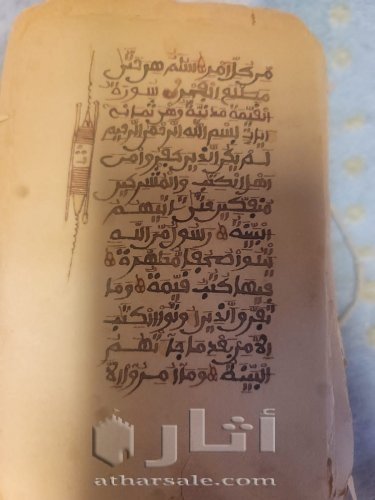 من كل امر سلم هي حتى
مطلع الفجر سورة
القيمة مدنية وهي ثماني
ايات بسم الله الرحمن الرحيم
لم يكن الذين كفروا من
اهل الكتب والمشركين
منفكين حتى تاتيهم
البينة رسول من الله
يتلوا صحفا مطهرة
فيها كتب قيمة وما
تفرق الذين اوتوا الكتب
الا من بعد ما جاتهم
البينة وما امروا الا
أثار
atharsale.com